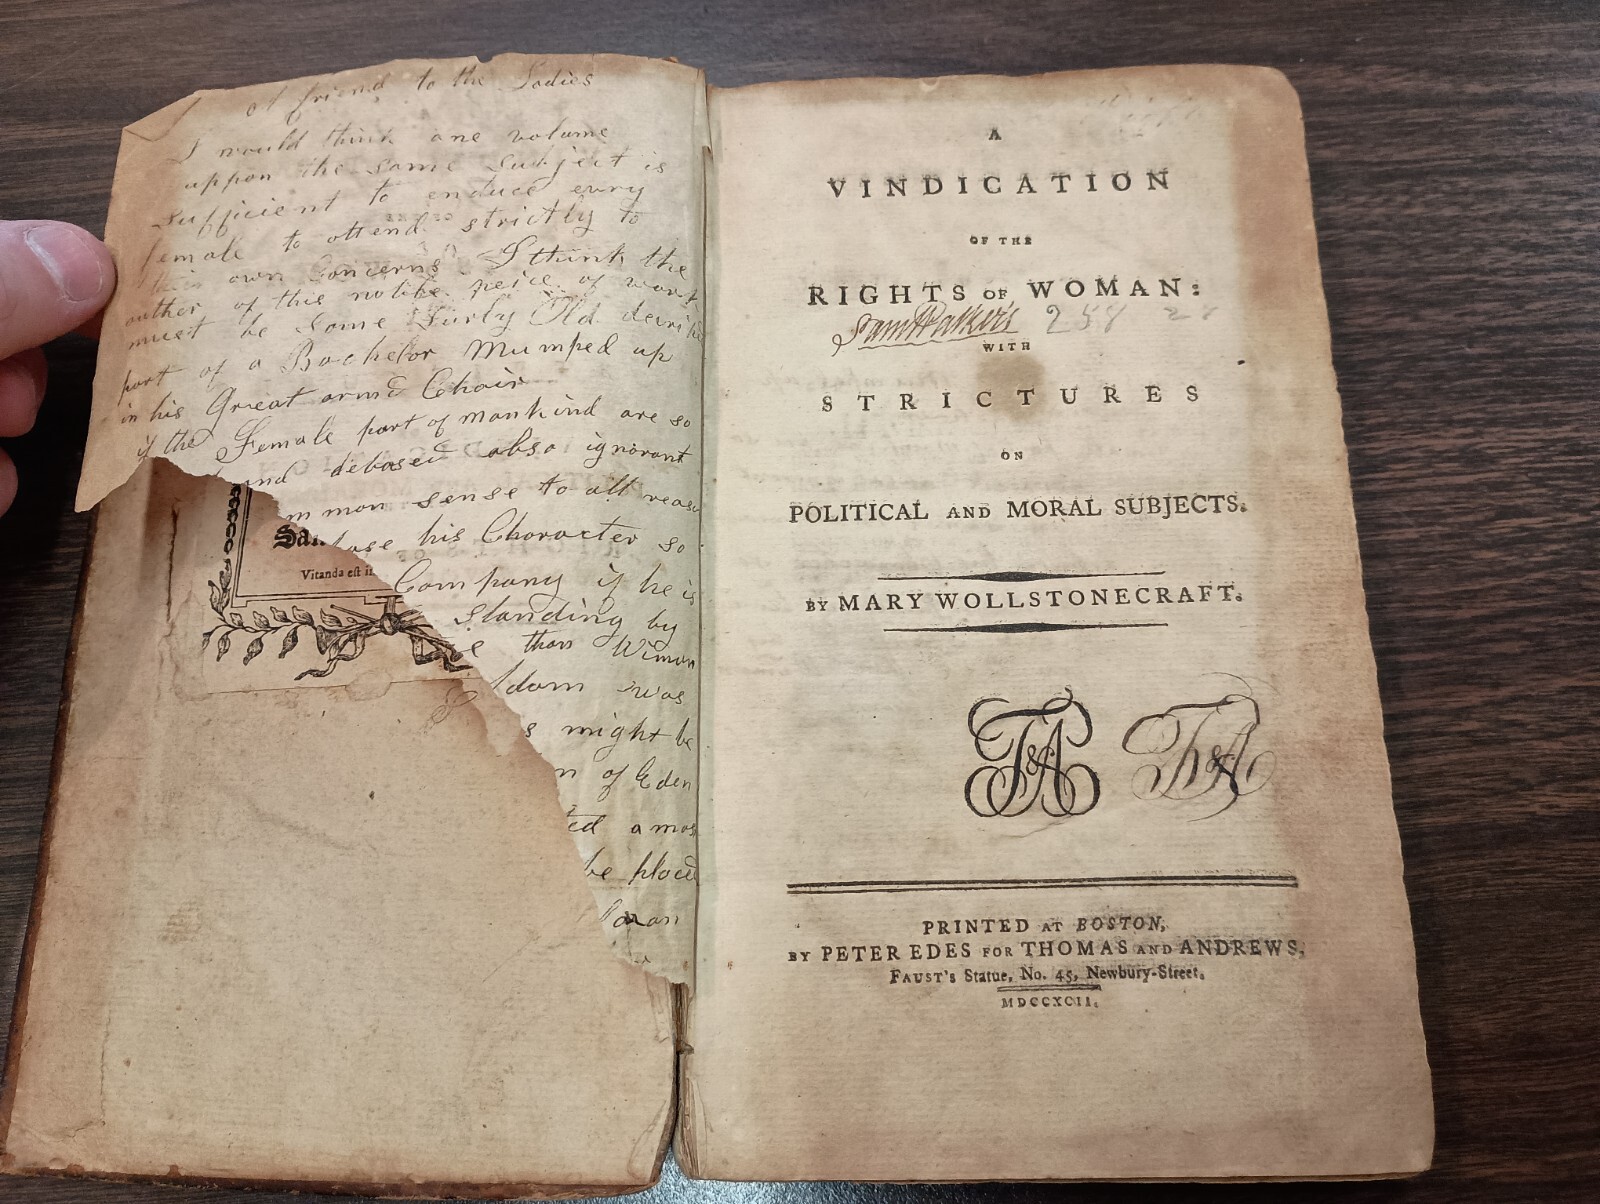 ot friend to the Ladies
I would think one volume
uppon the same Subject is
sufficient to enduce evry
female to attend strictly to
their own Concerns I think the
auther of this notibe peice of work
must be some Surly Old
part of a Bachelor Mumped up
in his Great armd Chair
if the Female part of mankind are so
and debased also ignorant
mmon sense to all reas
his Character so
Company if he is
standing by
than Wiman
Adam was
s might be
n of Eden
ted amos
be placed
San
Vitanda est i
A
VINDICATION
OF THE
RIGHTS OF WOMAN:
Sam Walker's 258
WITH
STRICTURES
ON
POLITICAL AND MORAL SUBJECTS.
BY MARY WOLLSTONECRAFT.
T&A T&A
PRINTED AT BOSTON,
BY PETER EDES FOR THOMAS AND ANDREWS,
FAUST's Statue, No. 45, Newbury-Street.
MDCCXCII.